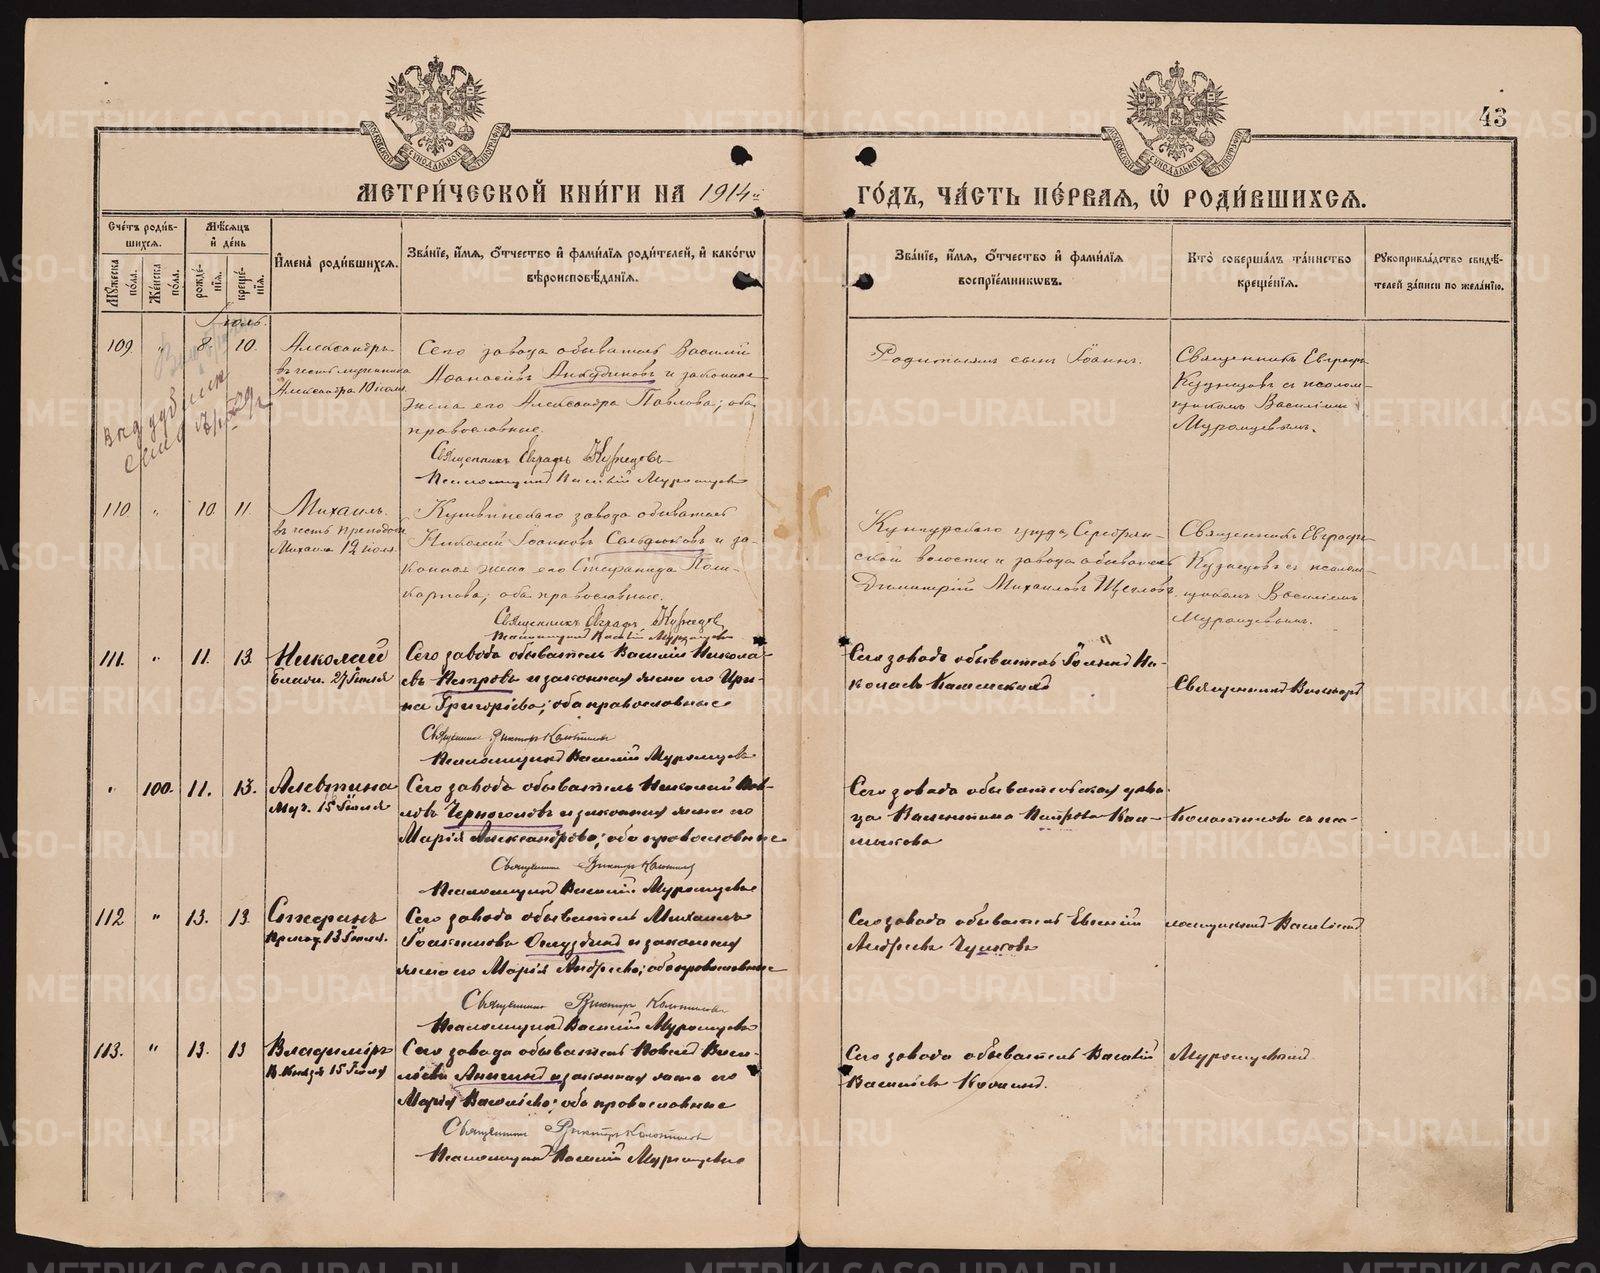 43
МОСКОВСКОЙ СѴНОДАЛЬНОЙ ТИПОГРАФІИ
МОСКОВСКОЙ СѴНОДАЛЬНОЙ ТИПОГРАФІИ
МЕТРИ́ЧЕСКОЙ КНИ́ГИ НА 1914й
ГО́ДЪ, ЧА́СТЬ ПЕ́РВАЯ, Ѽ РОДИ́ВШИХСЯ.
Сче́тъ роди́в-
шихся.
Му́жеска по́ла.
Же́нска по́ла.
Мѣ́сяцъ
и҆ де́нь
рожде́-
нїя.
креще́-
нїя.
И҆мена̀ роди́вшихся.
Зва́нїе, и҆́мя, ѻ҆́тчество и҆ фами́лїя роди́телей, и҆ како́гѡ
вѣроисповѣ́данїя.
Зва́нїе, и҆́мя, ѻ҆́тчество и҆ фами́лїя
воспрїе́мникѡвъ.
Кто̀ соверша́лъ та́инство
креще́нїя.
Рꙋкоприкла́дство свидѣ́-
телей за́писи по жела́нїю.
Іюль.
109. " 8. 10. Александръ
въ честь мученика
Александра 10 іюля.
Сего завода обыватель Василій
Аѳанасіевъ Анкудиновъ и законная
жена его Александра Павлова; оба
православные.
Священникъ Евграфъ Кузнецовъ
Псаломщикъ Василій Муромцевъ
Родителямъ сынъ Іоаннъ.
Священникъ Евграфъ
Кузнецовъ съ псалом-
щикомъ Василіемъ
Муромцевымъ.
110. " 10. 11. Михаилъ.
въ честь преподобн.
Михаила 12 іюля.
завода обыватель
Николай Іоанновъ и за-
конная жена его Стефанида Поли-
карпова; оба православные.
Священникъ Евграфъ Кузнецовъ
Псаломщикъ Василій Муромцевъ
Кунгурскаго уезда, Серебрян-
ской волости и завода обыватель
Димитрій Михаиловъ Щегловъ.
Священникъ Евграфъ
Кузнецовъ съ псалом-
щикомъ Василіемъ
Муромцевымъ.
111. " 11. 13. Николай
Блажн. 27 Іюля
Сего завода обыватель Василій Никола-
евъ Петровъ и законная жена его Ири-
на Григоріева; оба православные
Священникъ Викторъ
Псаломщикъ Василій Муромцевъ
Сего завода обыватель На-
колаевъ
Священникъ Викторъ
" 100. 11. 13. Алевтина
Муч. 16 Іюля
Сего завода обыватель Николай Пав-
ловъ Черноголовъ и законная жена его
Марія Александрова; оба православные
Священникъ Викторъ
Псаломщикъ Василій Муромцевъ
Сего завода обывательская дѣви-
ца Валентина Петрова
съ пса-
112 " 13. 13. Стефанъ
Препод. 13 Іюля.
Сего завода обыватель Михаилъ
Іоакимовъ и законная
жена его Марія Андреева; оба православные
Священникъ Викторъ
Псаломщикъ Василій Муромцевъ
Сего завода обыватель Евгеній
Андреевъ Чушковъ
ломщикомъ Василіемъ
113. " 13. 13 Владиміръ
В. Князя 15 Іюля
Сего завода обыватель Павелъ Васи-
льевъ Аникинъ и законная жена его
Марія Васильева; оба православные
Священникъ Викторъ
Псаломщикъ Василій Муромцевъ
Сего завода обыватель Василій
Васильевъ
Муромцевымъ.
METRIKI.GASO-URAL.RU